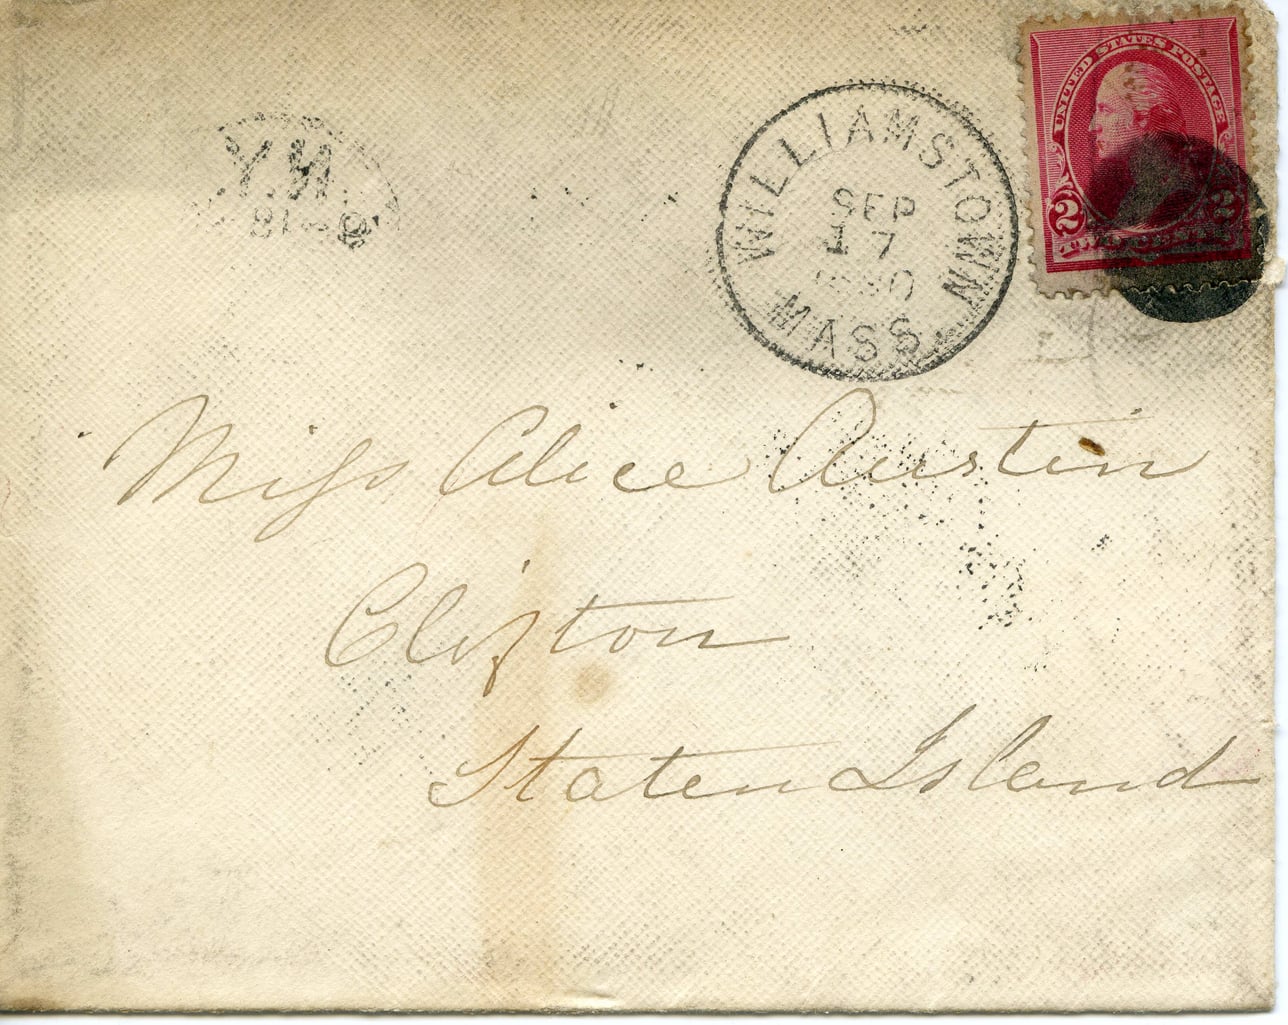 UNITED STATES POSTAGE
2 2
TWO CENTS
WILLIAMSTOWN
SEP
17
MASS.
N.Y.
Miss Alice Austin
Clifton
Staten Island